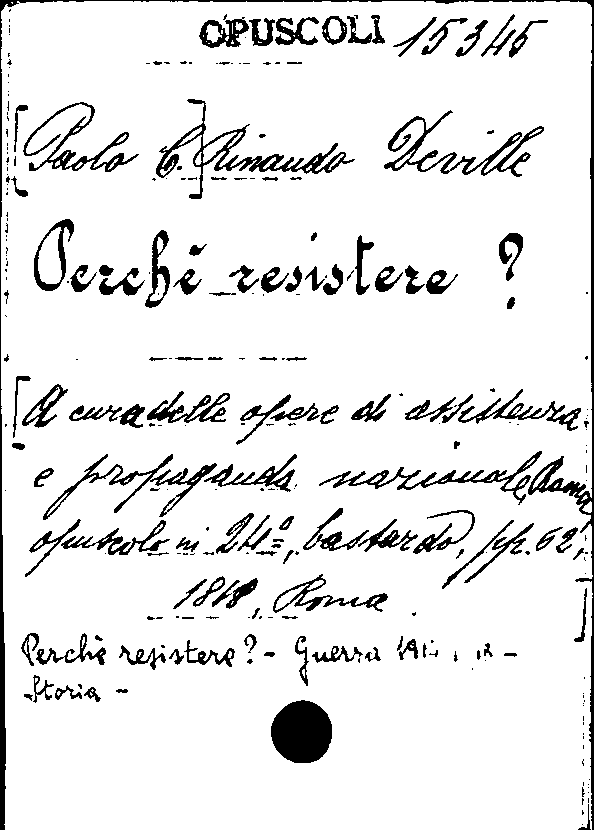 OPUSCOLI 15345
[Paolo C.] Rinaudo Deville
Perchè resistere ?
[A cura delle opere di assistenza
e propaganda nazionale, Roma,
opuscolo in 24º, bastardo, pp. 62,
1818, Roma.]
Perchè resistere? - Guerra -
Storia -